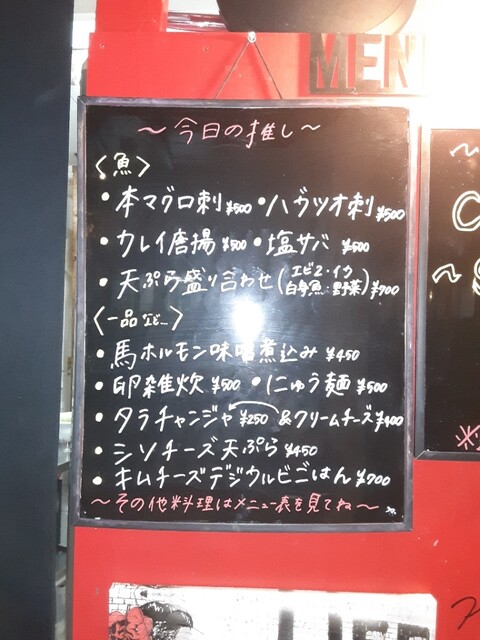 MEN
～今日の推し～
〈魚〉
・本マグロ刺¥500 ・ハガツオ刺¥500
・カレイ唐揚¥500 ・塩サバ ¥500
・天ぷら盛り合わせ(エビ2・イカ 白身魚・野菜)¥700
〈一品など…〉
・馬ホルモン味噌煮込み ¥450
・卵雑炊 ¥500 ・にゅう麺¥500
・タラチャンジャ¥250 &クリームチーズ¥400
・シソチーズ天ぷら ¥450
・キムチーズデジカルビごはん ¥700
～その他料理はメニュー表を見てね～